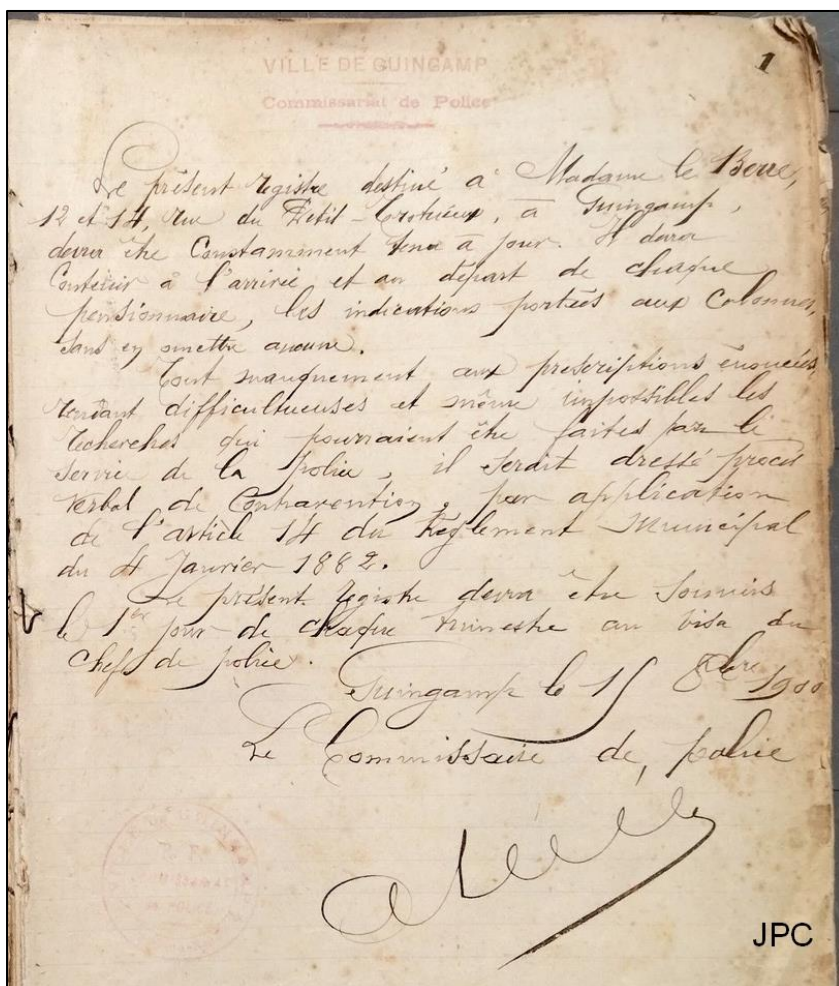 1
VILLE DE GUINGAMP
Commissariat de Police
Le présent registre destiné à Madame le Berre,
12 et 14, rue du Petit-Trotrieux, à Guingamp,
devra être Constamment tenu à jour. Il devra
Contenir à l'arrivée et au départ de chaque
pensionnaire, les indications portées aux Colonnes,
sans en omettre aucune.
Tout manquement aux prescriptions énoncées,
rendant difficultueuses et même impossibles les
recherches qui pourraient être faites par le
Service de la police, il serait dressé procès
verbal de Contravention, par application
de l'article 14 du Règlement Municipal
du 4 Janvier 1882.
Le présent registre devra être soumis
le 1er jour de chaque trimestre au visa du
Chef de police.
Guingamp le 15 8bre 1900
Le Commissaire de police
R. F.
COMMISSARIAT
DE POLICE
JPC